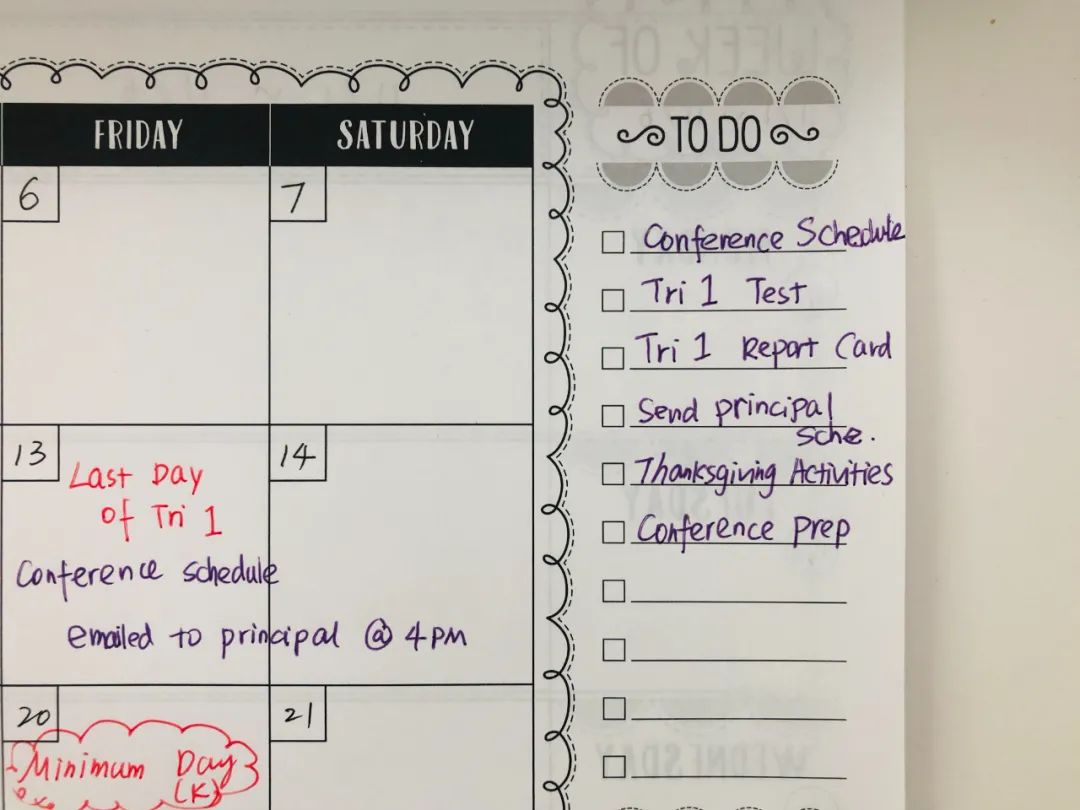 FRIDAY SATURDAY
6 7
13 14
Last Day
of Tri 1
Conference schedule
emailed to principal @ 4PM
20 21
Minimum Day
(K)
TO DO
Conference Schedule
Tri 1 Test
Tri 1 Report Card
Send principal
sche.
Thanksgiving Activities
Conference prep
WEEK OF
TUESDAY
WEDNESDAY